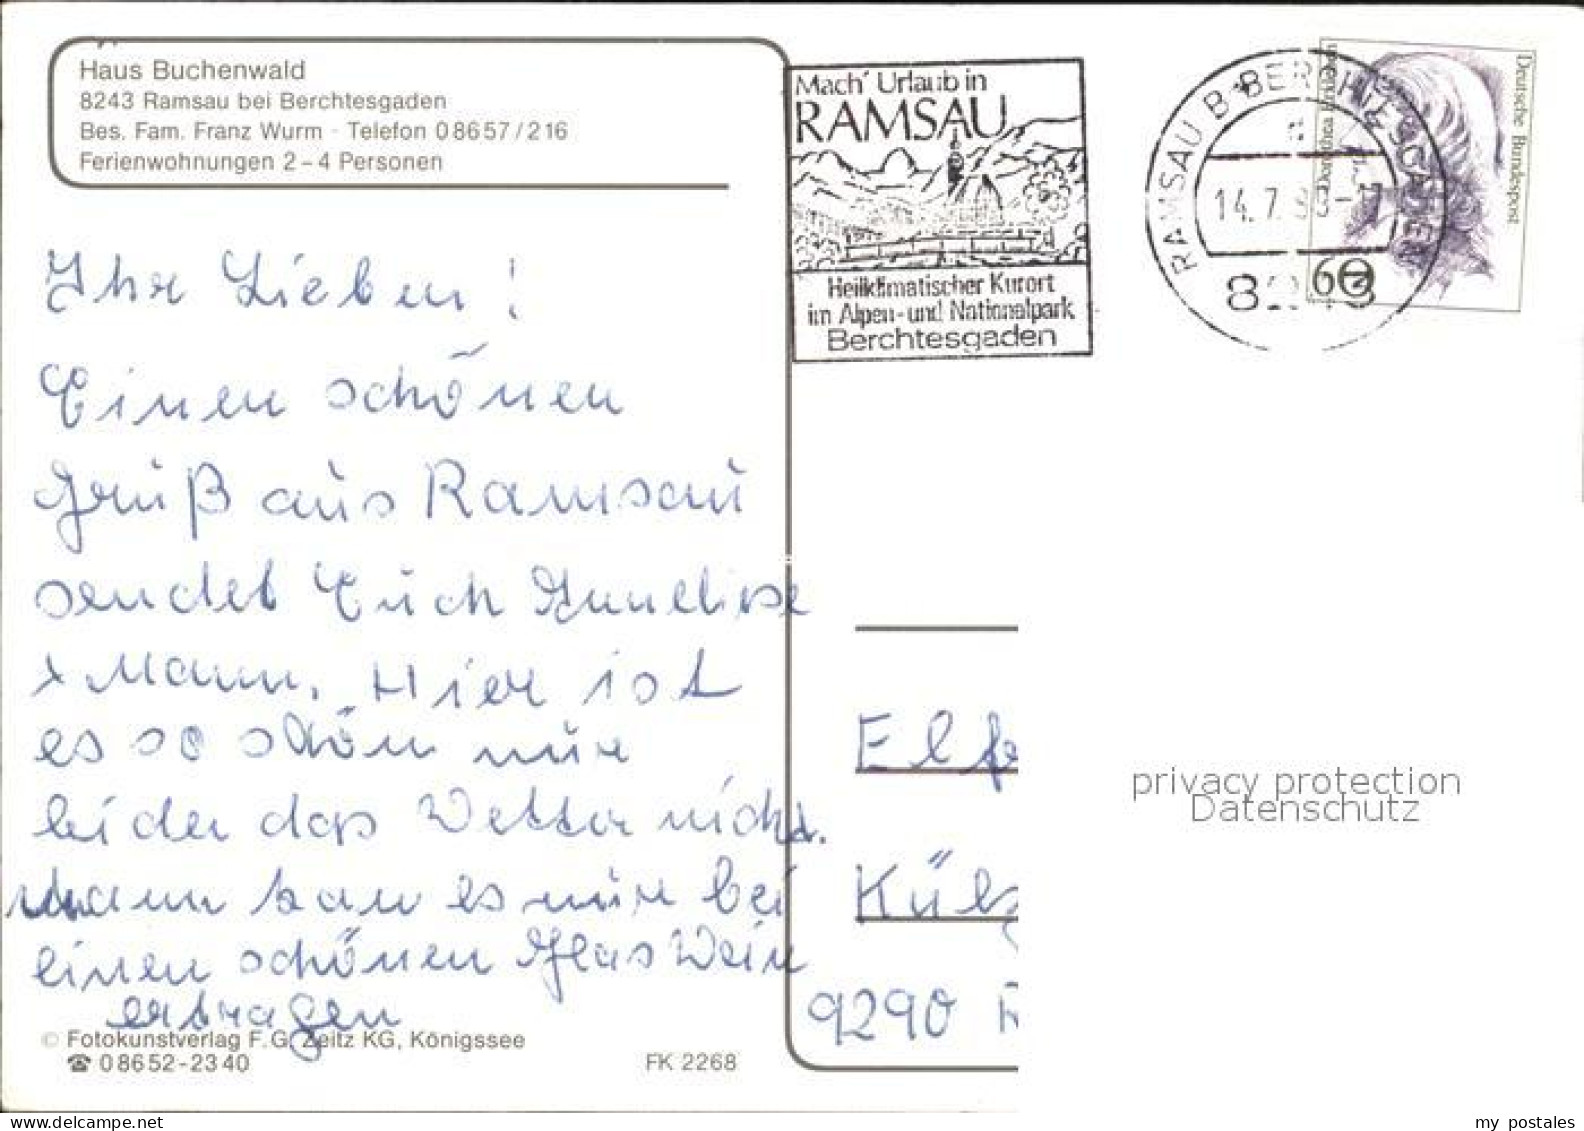 Haus Buchenwald
8243 Ramsau bei Berchtesgaden
Bes. Fam. Franz Wurm · Telefon 08657/216
Ferienwohnungen 2–4 Personen
Mach' Urlaub in
RAMSAU
Heilklimatischer Kurort
im Alpen- und Nationalpark
Berchtesgaden
RAMSAU B. BERCHTESGADEN
14.7.8
8243
Deutsche Bundespost
Dorothea Erxleben
60
Ihr Lieben!
Einen schönen
Gruß aus Ramsau
sendet Euch Anneliese
+ Mann. Hier ist
es so schön nur
leider das Wetter nicht.
Mann kan es nur bei
einen schönen Glas Wein
ertragen
Elf
Külz
9290
© Fotokunstverlag F. G. Zeitz KG, Königssee
☎ 08652-2340
FK 2268
privacy protection
Datenschutz
my postales